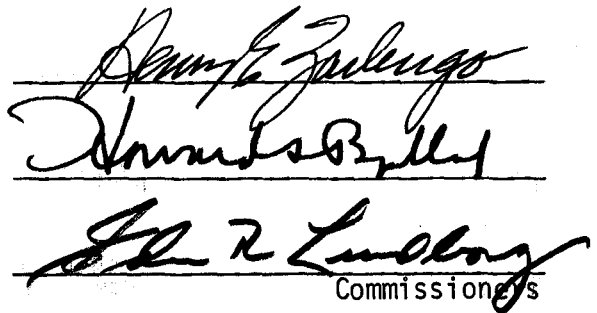 Henry E. Zarlengo
Howard S. Bjelland
John R. Lundborg
Commissioners